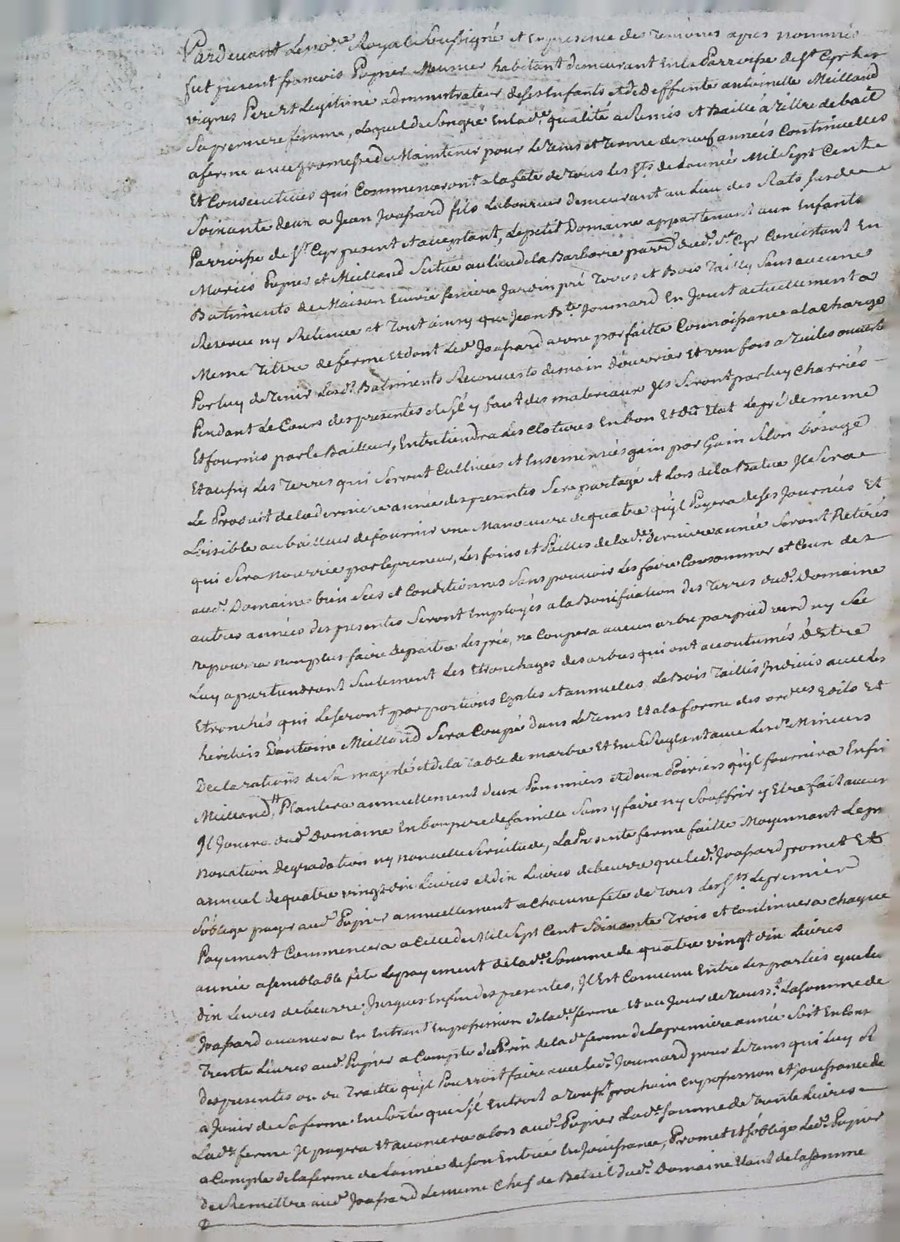 Pardevant Le no.re Royal Soussigné et En presence des temoins apres nommés
fut present francois Papier Meunier habitant demeurant En la Parroisse de S.t Cyr les
vignes Pere et Legitime administrateur de ses Enfants et de deffunte antoinette Meilland
Sa premiere femme, Lequel de Son gré En lad.e qualité a Remis et Baillé a Tiltre de bail
a ferme avec promesse de Maintenir pour Le tems et terme de neuf années Continuelles
Et Consecutives qui Commenceront a la fête de tous les S.ts de Lannée Mil Sept Cent
Soixante deux a Jean Joassard fils Laboureur demeurant au Lieu des Rats susd.e
Parroisse de S.t Cyr present et acceptant, Le petit Domaine appartenant aux Enfants
Mariés Papier et Meilland Situé au lieu de la Barbare parr.e dud. S.t Cyr Consistant En
Batiments de Maison Ecurie feniere Jardin pré Terres et Bois Taillis Sans aucune
Reserve ny Retenue et Tout ainsy que Jean B.te Joumard En Jouit actuellement a
Meme Tiltre de ferme Et dont Led. Joassard a une parfaitte Connoissance a la charge
Par luy de tenir Lesd. Batiments Recouverts de main d'ouvrier Et une fois a Tuiles ouverte
Pendant Le Cours des presentes et S'il y faut des materiaux Ils Seront par luy Charriés
Et fournis par le Bailleur, Entretiendra Les Clotures En bon Et dû Etat Le pré de meme
Et aussy Les Terres qui Seront Cultivées et Ensemencées gain par Gain Selon L'usage
Le Produit de la derniere année des presentes Sera partagé et Lors de la Batue Il Sera
Loisible au bailleur de fournir une Manoeuvre de quatre qu'il Payera de ses Journées Et
qui Sera nourrie par le preneur, Les foins et Pailles de lad.e derniere année Seront Retirés
aud. Domaine bien Secs et Conditionnés Sans pouvoir Les faire Consommer et Ceux des
autres années des presentes Seront Employés a la Bonification des Terres dud. Domaine
ne pourra non plus faire depaitre Les prés, ne Coupera aucun arbre par pied verd ny Sec
Luy apartiendront Seulement Les Etronchages des arbres qui ont accoutumés d'Etre
Etronchés qui Le seront par portions Egales et annuelles Le Bois Taillis Indivis avec Les
heritiers D'antoine Meilland Sera Coupé dans Le tems Et a la forme des ord.ces Edits Et
Declarations de Sa majesté et de la table de marbre Et En Se Reglant avec Lesd. Mineurs
Meilland, Plantera annuellement deux Pommiers et deux Poiriers qu'il fournira Enfin
Il Jouira dud. Domaine En bon pere de famille Sans y faire ny Souffrir y Etre fait aucun
novation degradation ny nouvelle Servitude, La Presente ferme faitte Moyennant Le prix
annuel de quatre vingt dix Livres et dix Livres de beurre que led. Joassard promet Et
S'oblige payer aud. Papier annuellement a Chacune fête de Tous Les S.ts Le premier
Payement Commencera a Celle de Mil Sept Cent Soixante Trois et Continuera chaque
année a semblable fête Le payement de lad.e Somme de quatre vingt dix Livres
dix Livres de beurre Jusques En fin des presentes, Il Est Convenu Entre Les parties que led.
Joassard avancera En Entrant En possession de lad.e ferme Et au Jour de Touss.t La Somme de
Trente Livres aud. Papier a Compte du Prix de lad.e ferme de la premiere année Soit En Cons
des presentes ou du Traitté qu'il Pourroit faire avec led. Joumard pour Le tems qui Luy R
a Jouir de Sa ferme En Sorte que S'il Entroit a prochain En possession et Jouissance de
Lad.e ferme Il payera Et avancera alors aud. Papier Lad.e Somme de Trente Livres
a Compte de la ferme de Lannée de Son Entrée En Jouissance, Promet Et S'oblige Led. Papier
de Remettre aud. Joassard Le meme Chef de Betail dud. Domaine Etant de la Somme